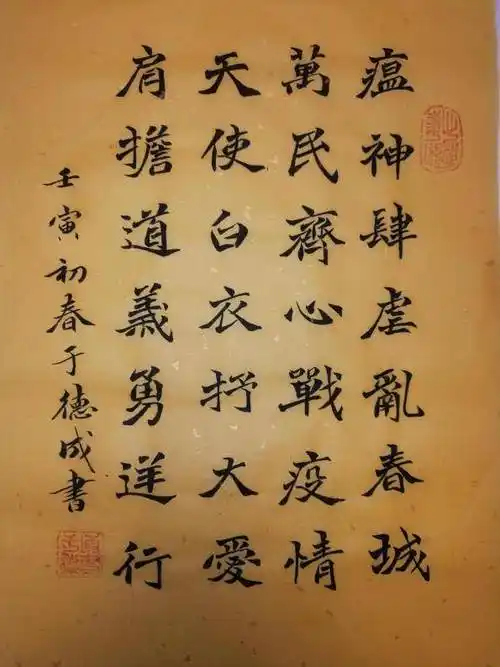 瘟神肆虐亂春城
萬民齊心戰疫情
天使白衣抒大愛
肩擔道義勇逆行
壬寅初春于德成書